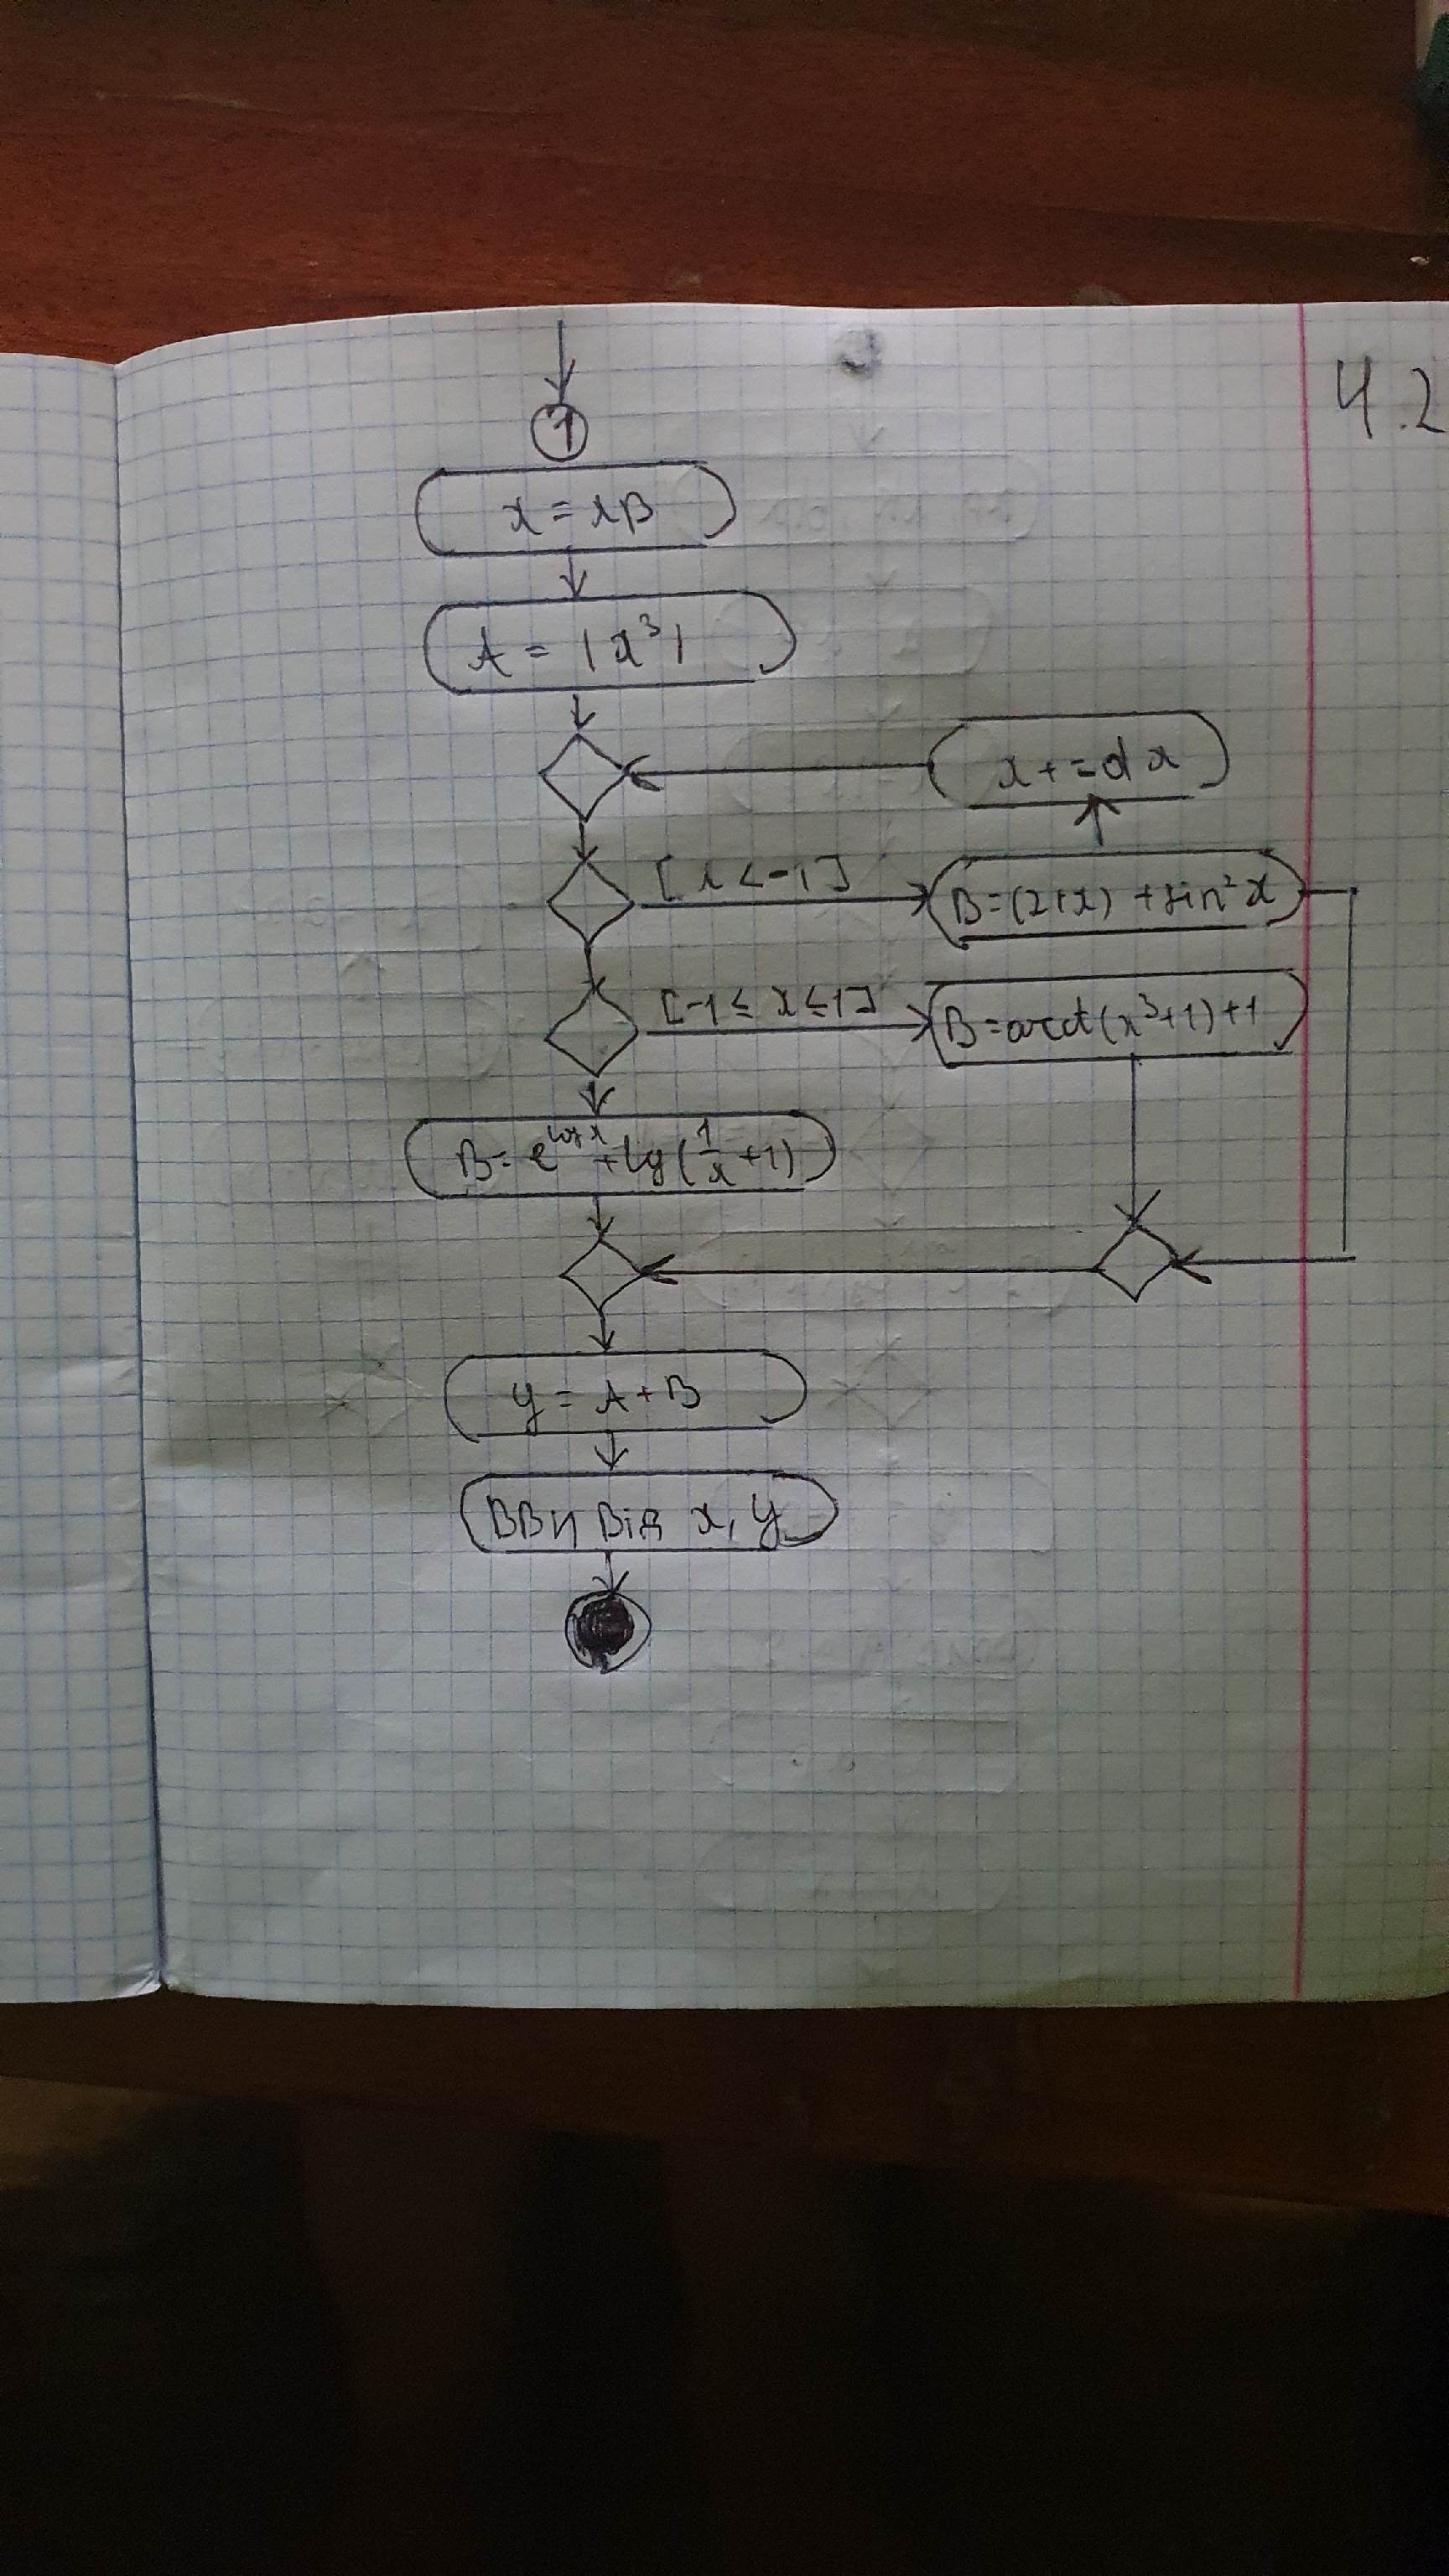 4.2
1
x = xB
A = |x³|
x += dx
[x < -1]
B = (2+x) + sin²x
[-1 ≤ x ≤ 1]
B = arcct(x³+1)+1
B = e^cos x + lg(1/x + 1)
y = A + B
x, y